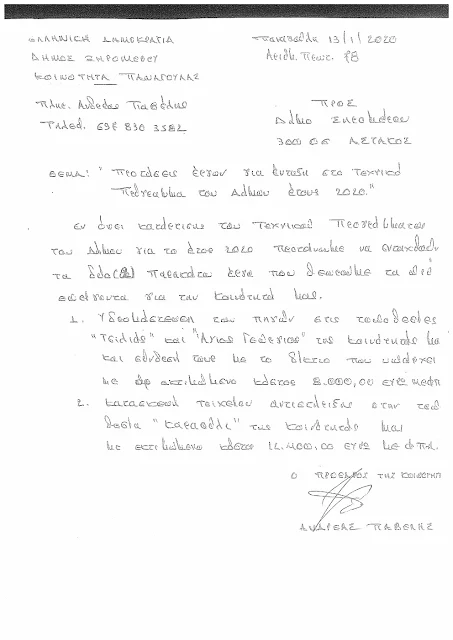 ΕΛΛΗΝΙΚΗ ΔΗΜΟΚΡΑΤΙΑ
Παναγούλα 13/1/2020
ΔΗΜΟΣ ΞΗΡΟΜΕΡΟΥ
Αριθμ. Πρωτ.
ΚΟΙΝΟΤΗΤΑ ΠΑΝΑΓΟΥΛΑΣ
ΠΡΟΣ
Πληρ. Ανδρέας Παβέλης
Δήμο Ξηρομέρου
Τηλεφ. 698 830 3582
300 06 ΑΣΤΑΚΟΣ
ΘΕΜΑ: "Προτάσεις έργων για ένταξη στο Τεχνικό
Πρόγραμμα του Δήμου έτους 2020."
Εν όψει κατάρτισης του Τεχνικού Προγράμματος
του Δήμου για το έτος 2020 προτείνουμε να ενταχθούν
τα δύο (2) παρακάτω έργα που θεωρούμε τα πιό
επείγοντα για την κοινότητά μας.
1. Υδρομάστευση των πηγών στις τοποθεσίες
"και "Άγιος Γεώργιος" της κοινότητάς μας
και σύνδεσή τους με το δίκτυο που υπάρχει
με εκτιμώμενο κόστος 8.000,00 ευρώ
2. Κατασκευή τοιχείου αντιστήριξης στην τοπο
θεσία της κοινότητάς μας
με εκτιμώμενο κόστος 12.400,00 ευρώ με Φ.Π.Α.
Ο ΠΡΟΕΔΡΟΣ ΤΗΣ ΚΟΙΝΟΤΗΤΑΣ
ΑΝΔΡΕΑΣ ΠΑΒΕΛΗΣ